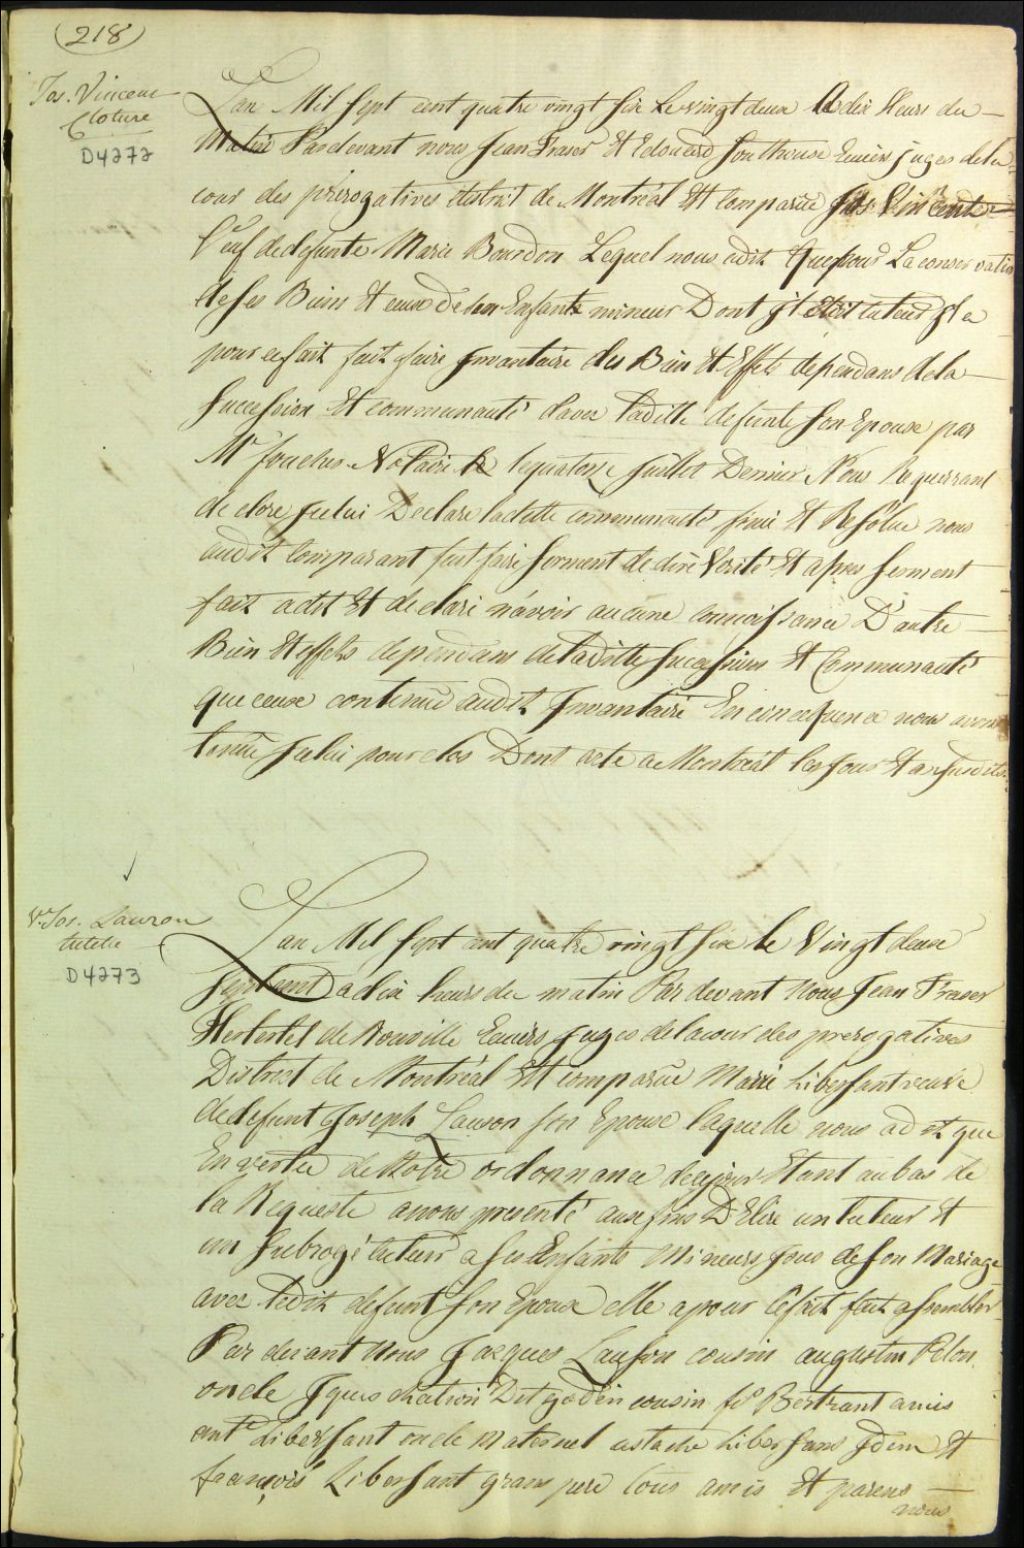 218
Jos. Vincent
Cloture
D4272
Lan Mil Sept cent quatre vingt Six Le vingt deux A dix Heurs du
Matin Pardevant nous Jean Fraser Et Edouard Southouse Ecuiers juges dela
cour des prérogatives district de Montréal Est comparüe Jos Vincent
Veuf dedefunte Marie Bourdon Lequel nous adit Que pour La conservation
de ses Biens Et ceux de son Enfant mineur Dont jl Etoit tuteur jl a
pour cefait fait faire jnvantaire des Bien Et Effets dependans dela
Succession Et communauté davec laditte defunte son Epouse par
Mr foucher Notaire le quatorze Juillet Dernier Nous Requerrant
de clore jcelui Declare laditte communauté finie Et Resolue nous
audit Comparant fait faire serment de dire Verité Et apres serment
fait adit Et declaré n'avoir aucune connoissance D'autre
Bien Et effets dependans deladitte Succession Et Communauté
que ceux contenüe audit jnvantaire En concequence nous avons
tenüe jcelui pour clos Dont acte a Montréal les jour Et a susdits
Ve. Jos. Lauzon
tutelle
D4273
Lan Mil Sept cent quatre vingt Six Le Vingt deux
Septembre a dix heurs du matin Par devant Nous Jean Fraser
Hertel de Rouville Ecuiers juges delacour des prerogatives
District de Montréal Est comparüe Marie Libersant veuve
dedefunt Joseph Lauson son Epoux laquelle nous adit que
En vertu de Notre ordonnance decejour Etant au bas de
la Requeste anous presenté aux fins D'Elire un tuteur Et
un subrogé tuteur a ses Enfants Mineurs jsus deson Mariage
avec ledit defunt son Epoux elle apour Cefait fait assembler
Par devant Nous Jacques Lauson cousin augustin Pelon
oncle Dit godin cousin fs Bertrant amis
ant Libersant oncle maternel ustache Libersans jdem Et
françois Libersant grans pere tous amis Et parens
nous